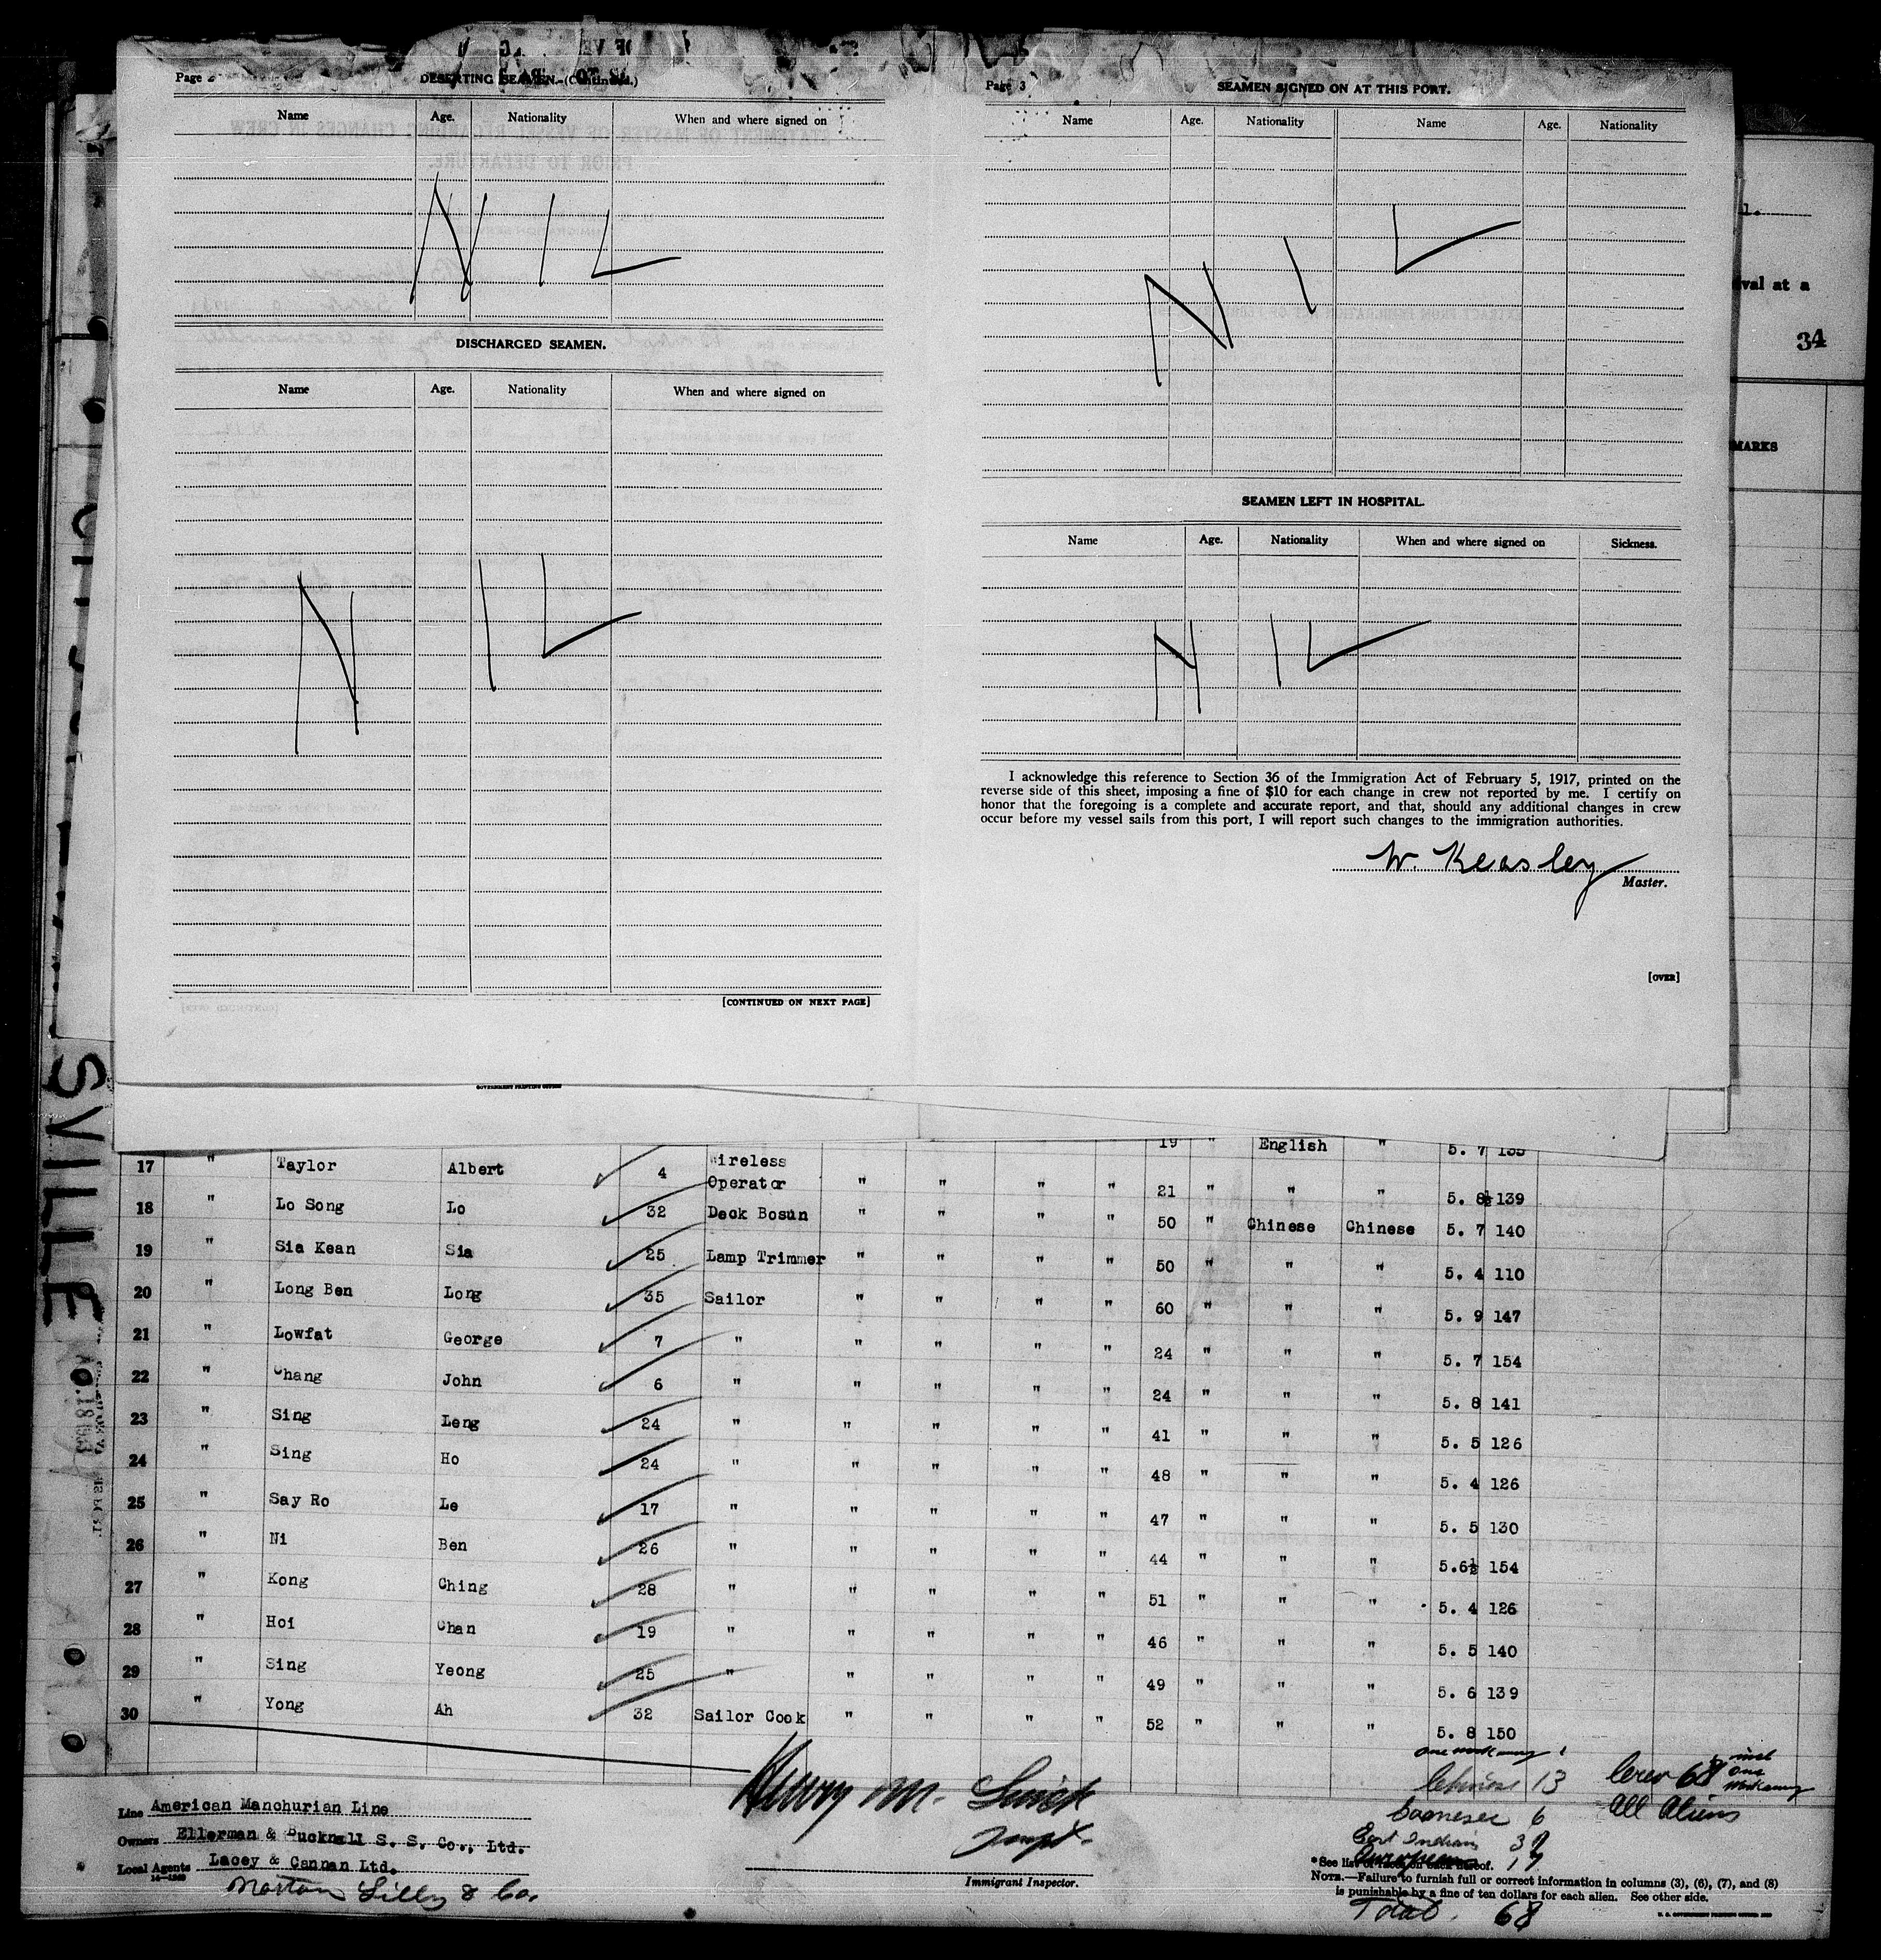 Page
DESERTING SEAMEN.—(Continued.)
Name Age. Nationality When and where signed on
NIL
DISCHARGED SEAMEN.
Name Age. Nationality When and where signed on
NIL
[CONTINUED ON NEXT PAGE]
Page 3
SEAMEN SIGNED ON AT THIS PORT.
Name Age. Nationality Name Age. Nationality
NIL
SEAMEN LEFT IN HOSPITAL.
Name Age. Nationality When and where signed on Sickness.
NIL
I acknowledge this reference to Section 36 of the Immigration Act of February 5, 1917, printed on the
reverse side of this sheet, imposing a fine of $10 for each change in crew not reported by me. I certify on
honor that the foregoing is a complete and accurate report, and that, should any additional changes in crew
occur before my vessel sails from this port, I will report such changes to the immigration authorities.
W. Keasley
Master.
[OVER]
val at a
34
MARKS
SVILLE
GOVERNMENT PRINTING OFFICE
19 " English " 5. 7 135
17 " Taylor Albert 4 Wireless Operator " " " " 21 " " " 5. 8½ 139
18 " Lo Song Lo 32 Deck Bosun " " " " 50 " Chinese Chinese 5. 7 140
19 " Sia Kean Sia 25 Lamp Trimmer " " " " 50 " " " 5. 4 110
20 " Long Ben Long 35 Sailor " " " " 60 " " " 5. 9 147
21 " Lowfat George 7 " " " " " 24 " " " 5. 7 154
22 " Chang John 6 " " " " " 24 " " " 5. 8 141
23 " Sing Leng 24 " " " " " 41 " " " 5. 5 126
24 " Sing Ho 24 " " " " " 48 " " " 5. 4 126
25 " Say Ro Le 17 " " " " " 47 " " " 5. 5 130
26 " Ni Ben 26 " " " " " 44 " " " 5.6½ 154
27 " Kong Ching 28 " " " " " 51 " " " 5. 4 126
28 " Hoi Chan 19 " " " " " 46 " " " 5. 5 140
29 " Sing Yeong 25 " " " " " 49 " " " 5. 6 139
30 " Yong Ah 32 Sailor Cook " " " " 52 " " " 5. 8 150
Line American Manchurian Line
Owners Ellerman & Bucknall S. S. Co., Ltd.
Local Agents Lacey & Cannan Ltd.
Norton Lilly & Co.
Henry M.
Immigrant Inspector.
one workaway 1
Chinese 13
Goanese 6
East Indian
European
Crew 68 incl one workaway
All Aliens
*See list of races on back hereof.
NOTE.—Failure to furnish full or correct information in columns (3), (6), (7), and (8)
is punishable by a fine of ten dollars for each alien. See other side.
Total. 68